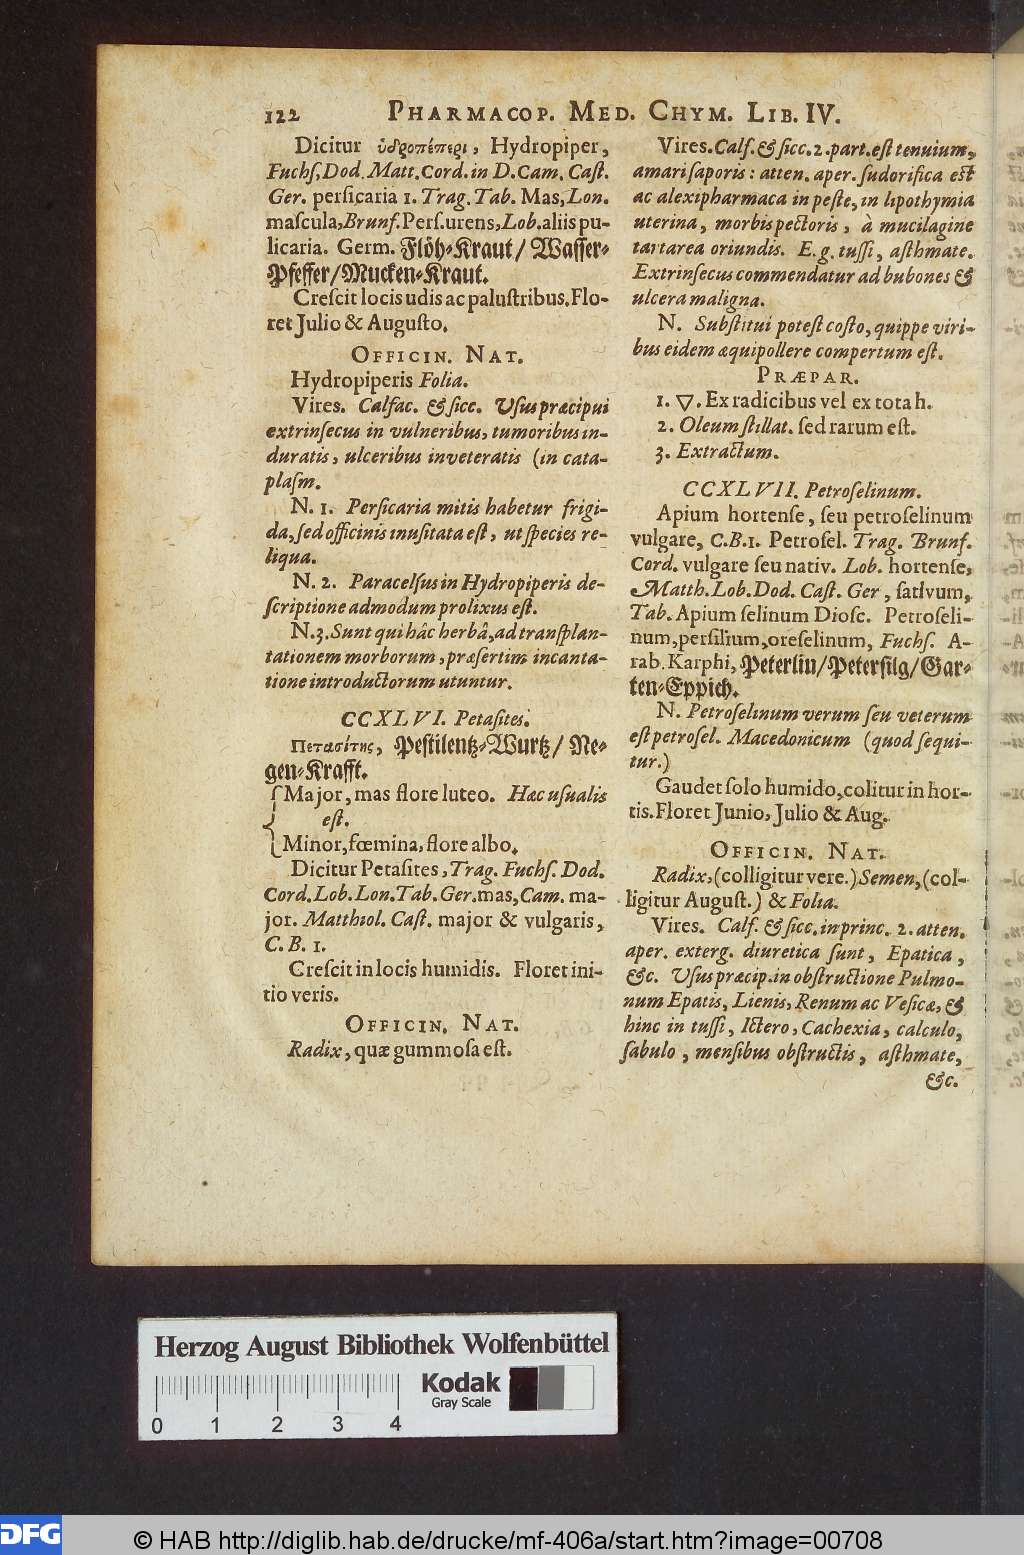 122 PHARMACOP. MED. CHYM. LIB. IV.
Dicitur ὑδροπέπερι, Hydropiper,
Fuchſ, Dod. Matt. Cord. in D. Cam. Caſt.
Ger. perſicaria 1. Trag. Tab. Mas, Lon.
maſcula, Brunf. Perſ. urens, Lob. aliis pu-
licaria. Germ. Flöh-Kraut/ Waſſer-
Pfeffer/ Mucken-Kraut.
Creſcit locis udis ac paluſtribus. Flo-
ret Julio & Auguſto.
OFFICIN. NAT.
Hydropiperis Folia.
Vires. Calfac. & ſicc. Uſus præcipui
extrinſecus in vulneribus, tumoribus in-
duratis, ulceribus inveteratis (in cata-
plaſm.
N. 1. Perſicaria mitis habetur frigi-
da, ſed officinis inuſitata eſt, ut ſpecies re-
liqua.
N. 2. Paracelſus in Hydropiperis de-
ſcriptione admodum prolixus eſt.
N. 3. Sunt qui hâc herbâ, ad tranſplan-
tationem morborum, præſertim incanta-
tione introductorum utuntur.
CCXLVI. Petaſites.
Πετασίτης, Peſtilentz-Wurtz/ Ne-
gen-Krafft.
Major, mas flore luteo. Hæc uſualis
eſt.
Minor, fœmina, flore albo.
Dicitur Petaſites, Trag. Fuchſ. Dod.
Cord. Lob. Lon. Tab. Ger. mas, Cam. ma-
jor. Matthiol. Caſt. major & vulgaris,
C. B. 1.
Creſcit in locis humidis. Floret ini-
tio veris.
OFFICIN. NAT.
Radix, quæ gummoſa eſt.
Vires. Calf. & ſicc. 2. part. eſt tenuium,
amari ſaporis: atten. aper. ſudorifica eſt
ac alexipharmaca in peſte, in lipothymia
uterina, morbis pectoris, à mucilagine
tartarea oriundis. E. g. tuſſi, aſthmate.
Extrinſecus commendatur ad bubones &
ulcera maligna.
N. Subſtitui poteſt coſto, quippe viri-
bus eidem æquipollere compertum eſt.
PRÆPAR.
1. ▽. Ex radicibus vel ex tota h.
2. Oleum ſtillat. ſed rarum eſt.
3. Extractum.
CCXLVII. Petroſelinum.
Apium hortenſe, ſeu petroſelinum
vulgare, C. B. 1. Petroſel. Trag. Brunf.
Cord. vulgare ſeu nativ. Lob. hortenſe,
Matth. Lob. Dod. Caſt. Ger, ſativum,
Tab. Apium ſelinum Dioſc. Petroſeli-
num, perſilium, oreſelinum, Fuchſ. A-
rab. Karphi, Peterlin/ Peterſilg/ Gar-
ten-Eppich.
N. Petroſelinum verum ſeu veterum
eſt petroſel. Macedonicum (quod ſequi-
tur.)
Gaudet ſolo humido, colitur in hor-
tis. Floret Junio, Julio & Aug.
OFFICIN. NAT.
Radix, (colligitur vere.) Semen, (col-
ligitur Auguſt.) & Folia.
Vires. Calf. & ſicc. in princ. 2. atten.
aper. exterg. diuretica ſunt, Epatica,
&c. Uſus præcip. in obſtructione Pulmo-
num Epatis, Lienis, Renum ac Veſicæ, &
hinc in tuſſi, Ictero, Cachexia, calculo,
ſabulo, menſibus obſtructis, aſthmate,
&c.
Herzog August Bibliothek Wolfenbüttel
Kodak
Gray Scale
0 1 2 3 4
DFG © HAB http://diglib.hab.de/drucke/mf-406a/start.htm?image=00708